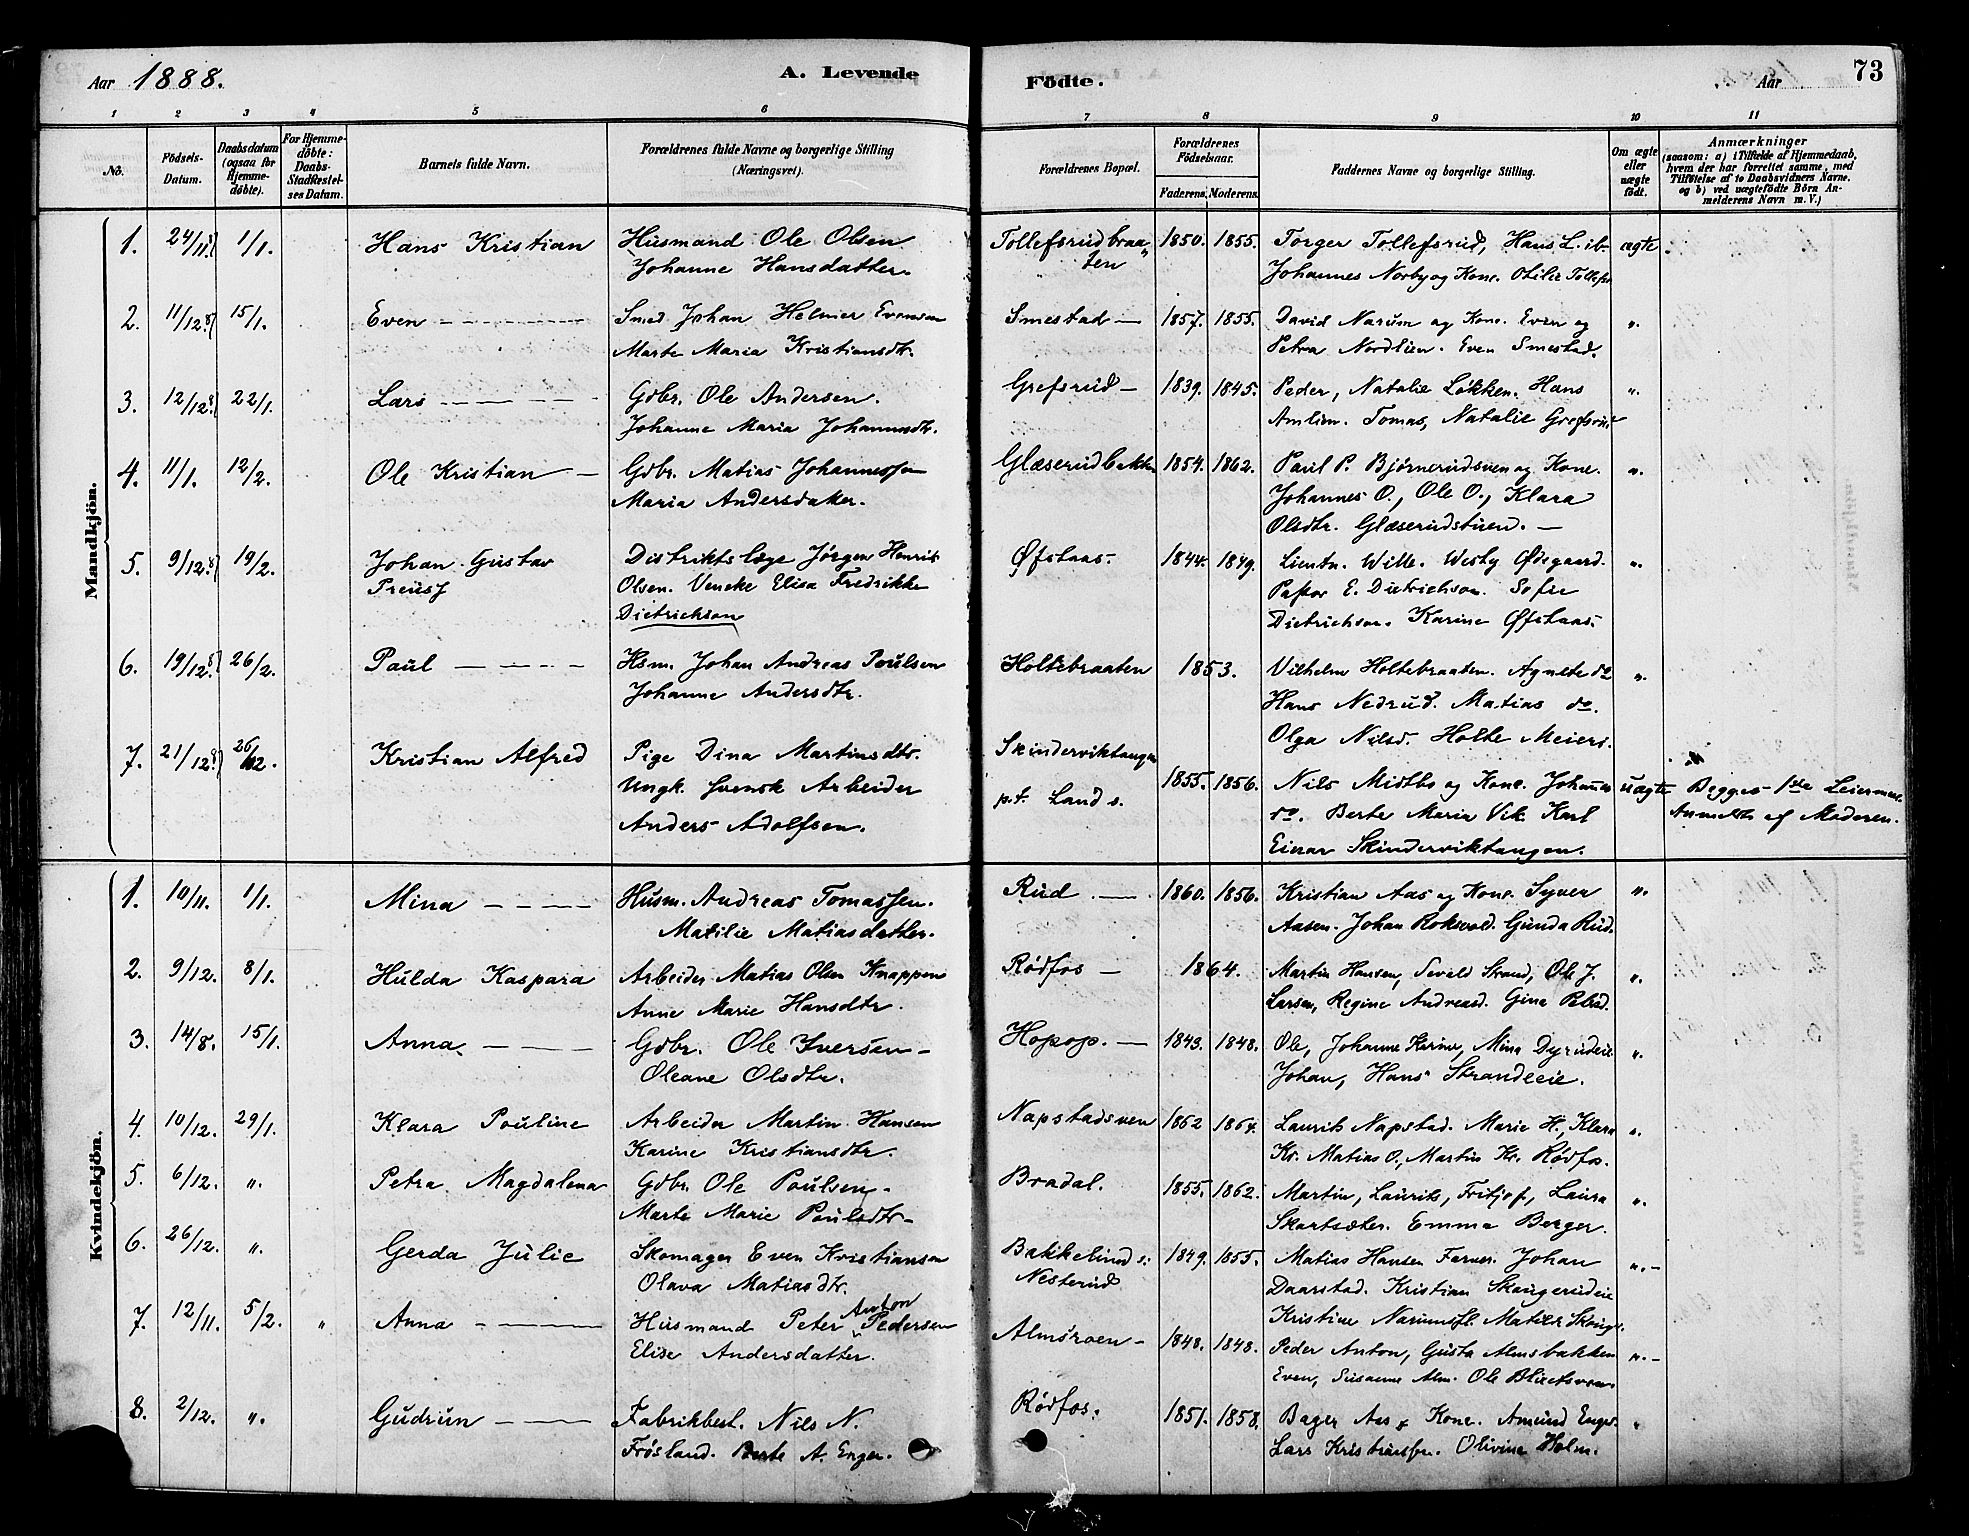 Aar 1888. A. Levende Födte. Aar 73
1 2 3 4 5 6 7 8 9 10 11
No. Födsels-Datum. Daabsdatum (ogsaa for Hjemmedöbte). For Hjemmedöbte: Daabs-Stadfæstelses Datum. Barnets fulde Navn. Forældrenes fulde Navne og borgerlige Stilling (Næringsvei). Forældrenes Bopæl. Forældrenes Födselsaar. Faderens. Moderens. Faddernes Navne og borgerlige Stilling. Om ægte eller uægte födt. Anmærkninger (saasom: a) i Tilfælde af Hjemmedaab, hvem der har forrettet samme, med Tilföielse af to Daabsvidners Navne, og b) ved uægtefödte Börn Anmelderens Navn m. V.)
Mandkjön.
1. 24/11. 1/1. Hans Kristian Husmand Ole Olsen Tollefsrudbraa- 1850. 1855. Torger Tollefsrud, Hans L. ib- ægte
Johanne Hansdatter. ten Johannes Norby og Kone. Otilie
2. 11/12. 15/1. Even Smed Johan Helmer Evensen Smestad 1857. 1855. David Narum og Kone. Even og "
Marte Maria Kristiansdtr. Petra Nordlien. Even Smestad.
3. 12/12. 22/1. Lars Gdbr. Ole Andersen. Grefsrud 1839. 1845. Peder, Natalie Løkken. Hans "
Johanne Maria Johannesdtr. Amlien. Tomas, Natalie Grefsrud
4. 11/1. 12/2. Ole Kristian Gdbr. Matias Johannessen Glæserudbakken 1854. 1862. Paul P. Bjørnerudsven og Kone. "
Maria Andersdatter. Johannes O., Ole O., Klara
Olsdtr. Glæserudstuen.
5. 9/12. 19/2. Johan Gustav Distriktslæge Jørgen Henrik Øfstaas. 1844. 1849. Lieutn. Wille. Wesby Ødegaard. "
Preuss Olsen. Vencke Elisa Fredrikke Pastor E. Dietrichson. Sofie
Dietrichson Dietrichson. Karine Øfstaas.
6. 19/12. 26/2. Paul Hsm. Johan Andreas Poulsen Holtebraaten 1853. Vilhelm Holtebraaten. Agnete do "
Johanne Andersdtr. Hans Nedrud. Matias do.
Olga Nilsd. Holte Meieri.
7. 21/12. 26/2. Kristian Alfred Pige Dina Martinsdtr. Skinderviktangen
Ungk. svensk Arbeider p.t. Lands. 1855. 1856. Nils Midtbo og Kone. Johannes uægte Begges 1ste Leiermaal.
Anders Adolfsen. do. Berte Maria Vik. Karl Anmeldt af Moderen.
Einar Skinderviktangen.
Kvindekjön.
1. 10/11. 1/1. Mina Husm. Andreas Tomassen. Rud 1860. 1856. Kristian Aas og Kone. Syver "
Matilie Matiasdatter. Aasen. Johan Roksvold. Gunda Rud.
2. 9/12. 8/1. Hulda Kaspara Arbeider Matias Olsen Knappen Rødfos 1864. Martin Hansen, Sevald Strand, Ole J. "
Anne Marie Hansdtr. Larsen, Regine Andreasd. Gina
3. 14/8. 15/1. Anna Gdbr. Ole Iversen Hopop. 1843. 1848. Ole, Johanne Karine, Mina Dyrudeie "
Oleane Olsdtr. Johan, Hans Strandeeie.
4. 10/12. 29/1. Klara Pouline Arbeider Martin Hansen Napstadsven 1862 1864. Laurits Napstad. Marie H., Klara "
Karine Kristiansdtr. Kr. Matias O., Martin Kr. Rødfos.
5. 6/12. " Petra Magdalena Gdbr. Ole Poulsen Bradal. 1855. 1862. Martin, Laurits, Fritjof, Laura "
Marte Marie Poulsdtr Skartsæter. Emma Berger.
6. 26/12. " Gerda Julie Skomager Even Kristiansen Bakkelund s: 1849. 1855. Matias Hansen Farver. Johan "
Olava Matiasdtr. Nesterud Daarstad. Kristian Skougerudeie
7. 12/11. 5/2. " Anna Husmand Peter Anton Pedersen Almsroen 1848. 1848. Kristine
Elise Andersdatter. Peder Anton, Gusta Almsbakken "
Even, Susanne Alm. Ole
8. 2/12. " Gudrun Fabrikbest. Nils N. Rødfos. 1851. 1858. Bager Aas & Kone. Amund Enger. "
Frösland. Berte A. Enger. Lars Kristiansen. Olivine Holm.